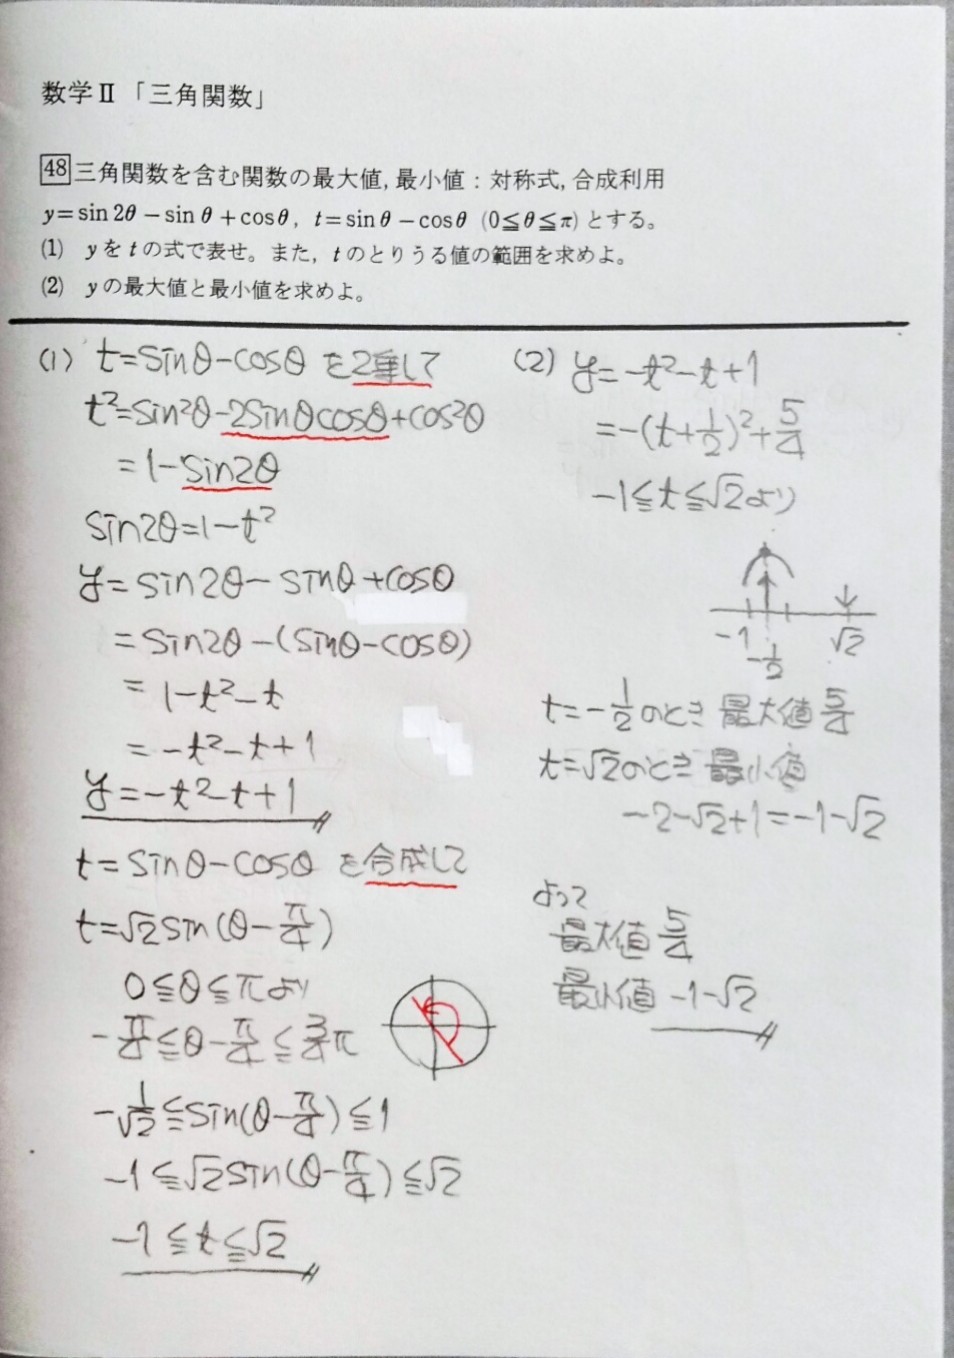 数学Ⅱ「三角関数」
48 三角関数を含む関数の最大値, 最小値：対称式, 合成利用
y=sin 2θ −sin θ +cosθ, t=sinθ −cosθ (0≦θ≦π) とする。
(1) y を t の式で表せ。また, t のとりうる値の範囲を求めよ。
(2) y の最大値と最小値を求めよ。
(1) t=sinθ-cosθ を2乗して
t²=sin²θ-2sinθcosθ+cos²θ
=1-sin2θ
sin2θ=1-t²
y=sin2θ-sinθ+cosθ
=sin2θ-(sinθ-cosθ)
=1-t²-t
=-t²-t+1
y=-t²-t+1
t=sinθ-cosθ を合成して
t=√2sin(θ-π/4)
0≦θ≦πより
-π/4≦θ-π/4≦3/4π
-1/√2≦sin(θ-π/4)≦1
-1≦√2sin(θ-π/4)≦√2
-1≦t≦√2
(2) y=-t²-t+1
=-(t+1/2)²+5/4
-1≦t≦√2より
-1 -1/2 √2
t=-1/2のとき 最大値 5/4
t=√2のとき 最小値
-2-√2+1=-1-√2
よって
最大値 5/4
最小値 -1-√2